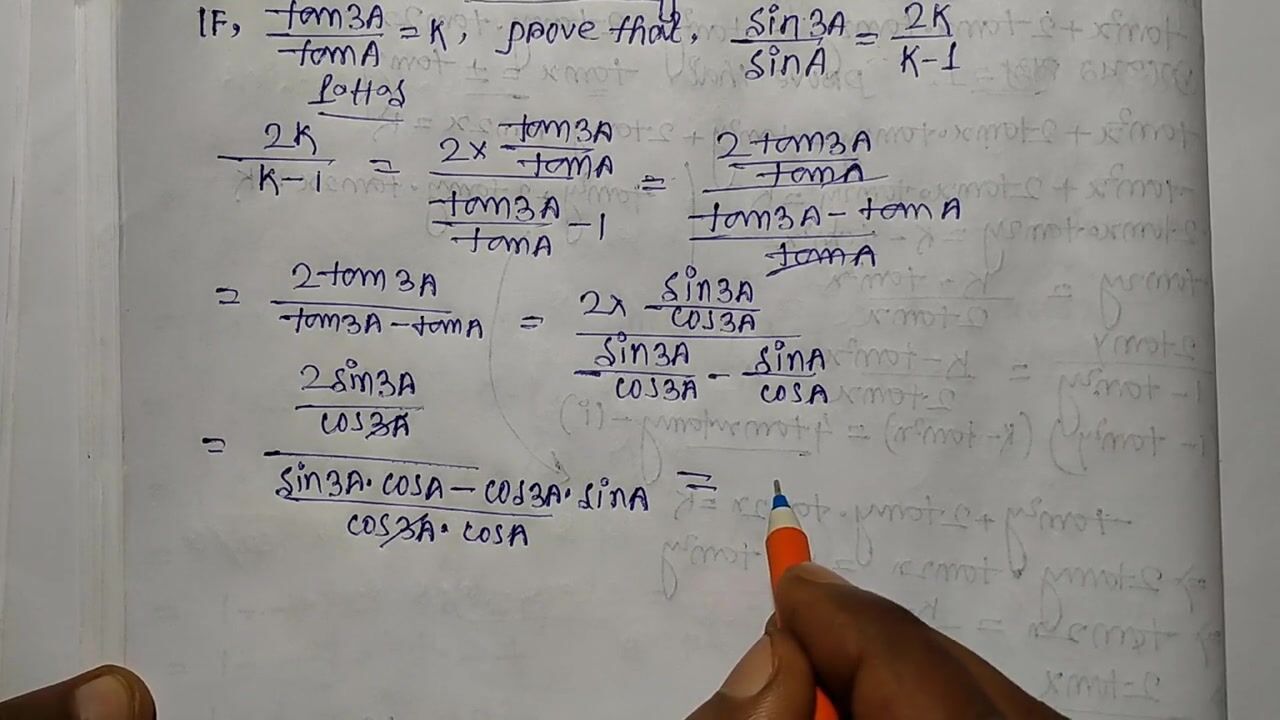 IF, tan3A/tanA = K, prove that, sin3A/sinA = 2K/K-1
2K/K-1 = 2× tan3A/tanA / tan3A/tanA - 1 = 2tan3A/tanA / tan3A - tanA/tanA
= 2tan3A/tan3A - tanA = 2× sin3A/cos3A / sin3A/cos3A - sinA/cosA
= 2sin3A/cos3A / sin3A·cosA - cos3A·sinA/cos3A·cosA =